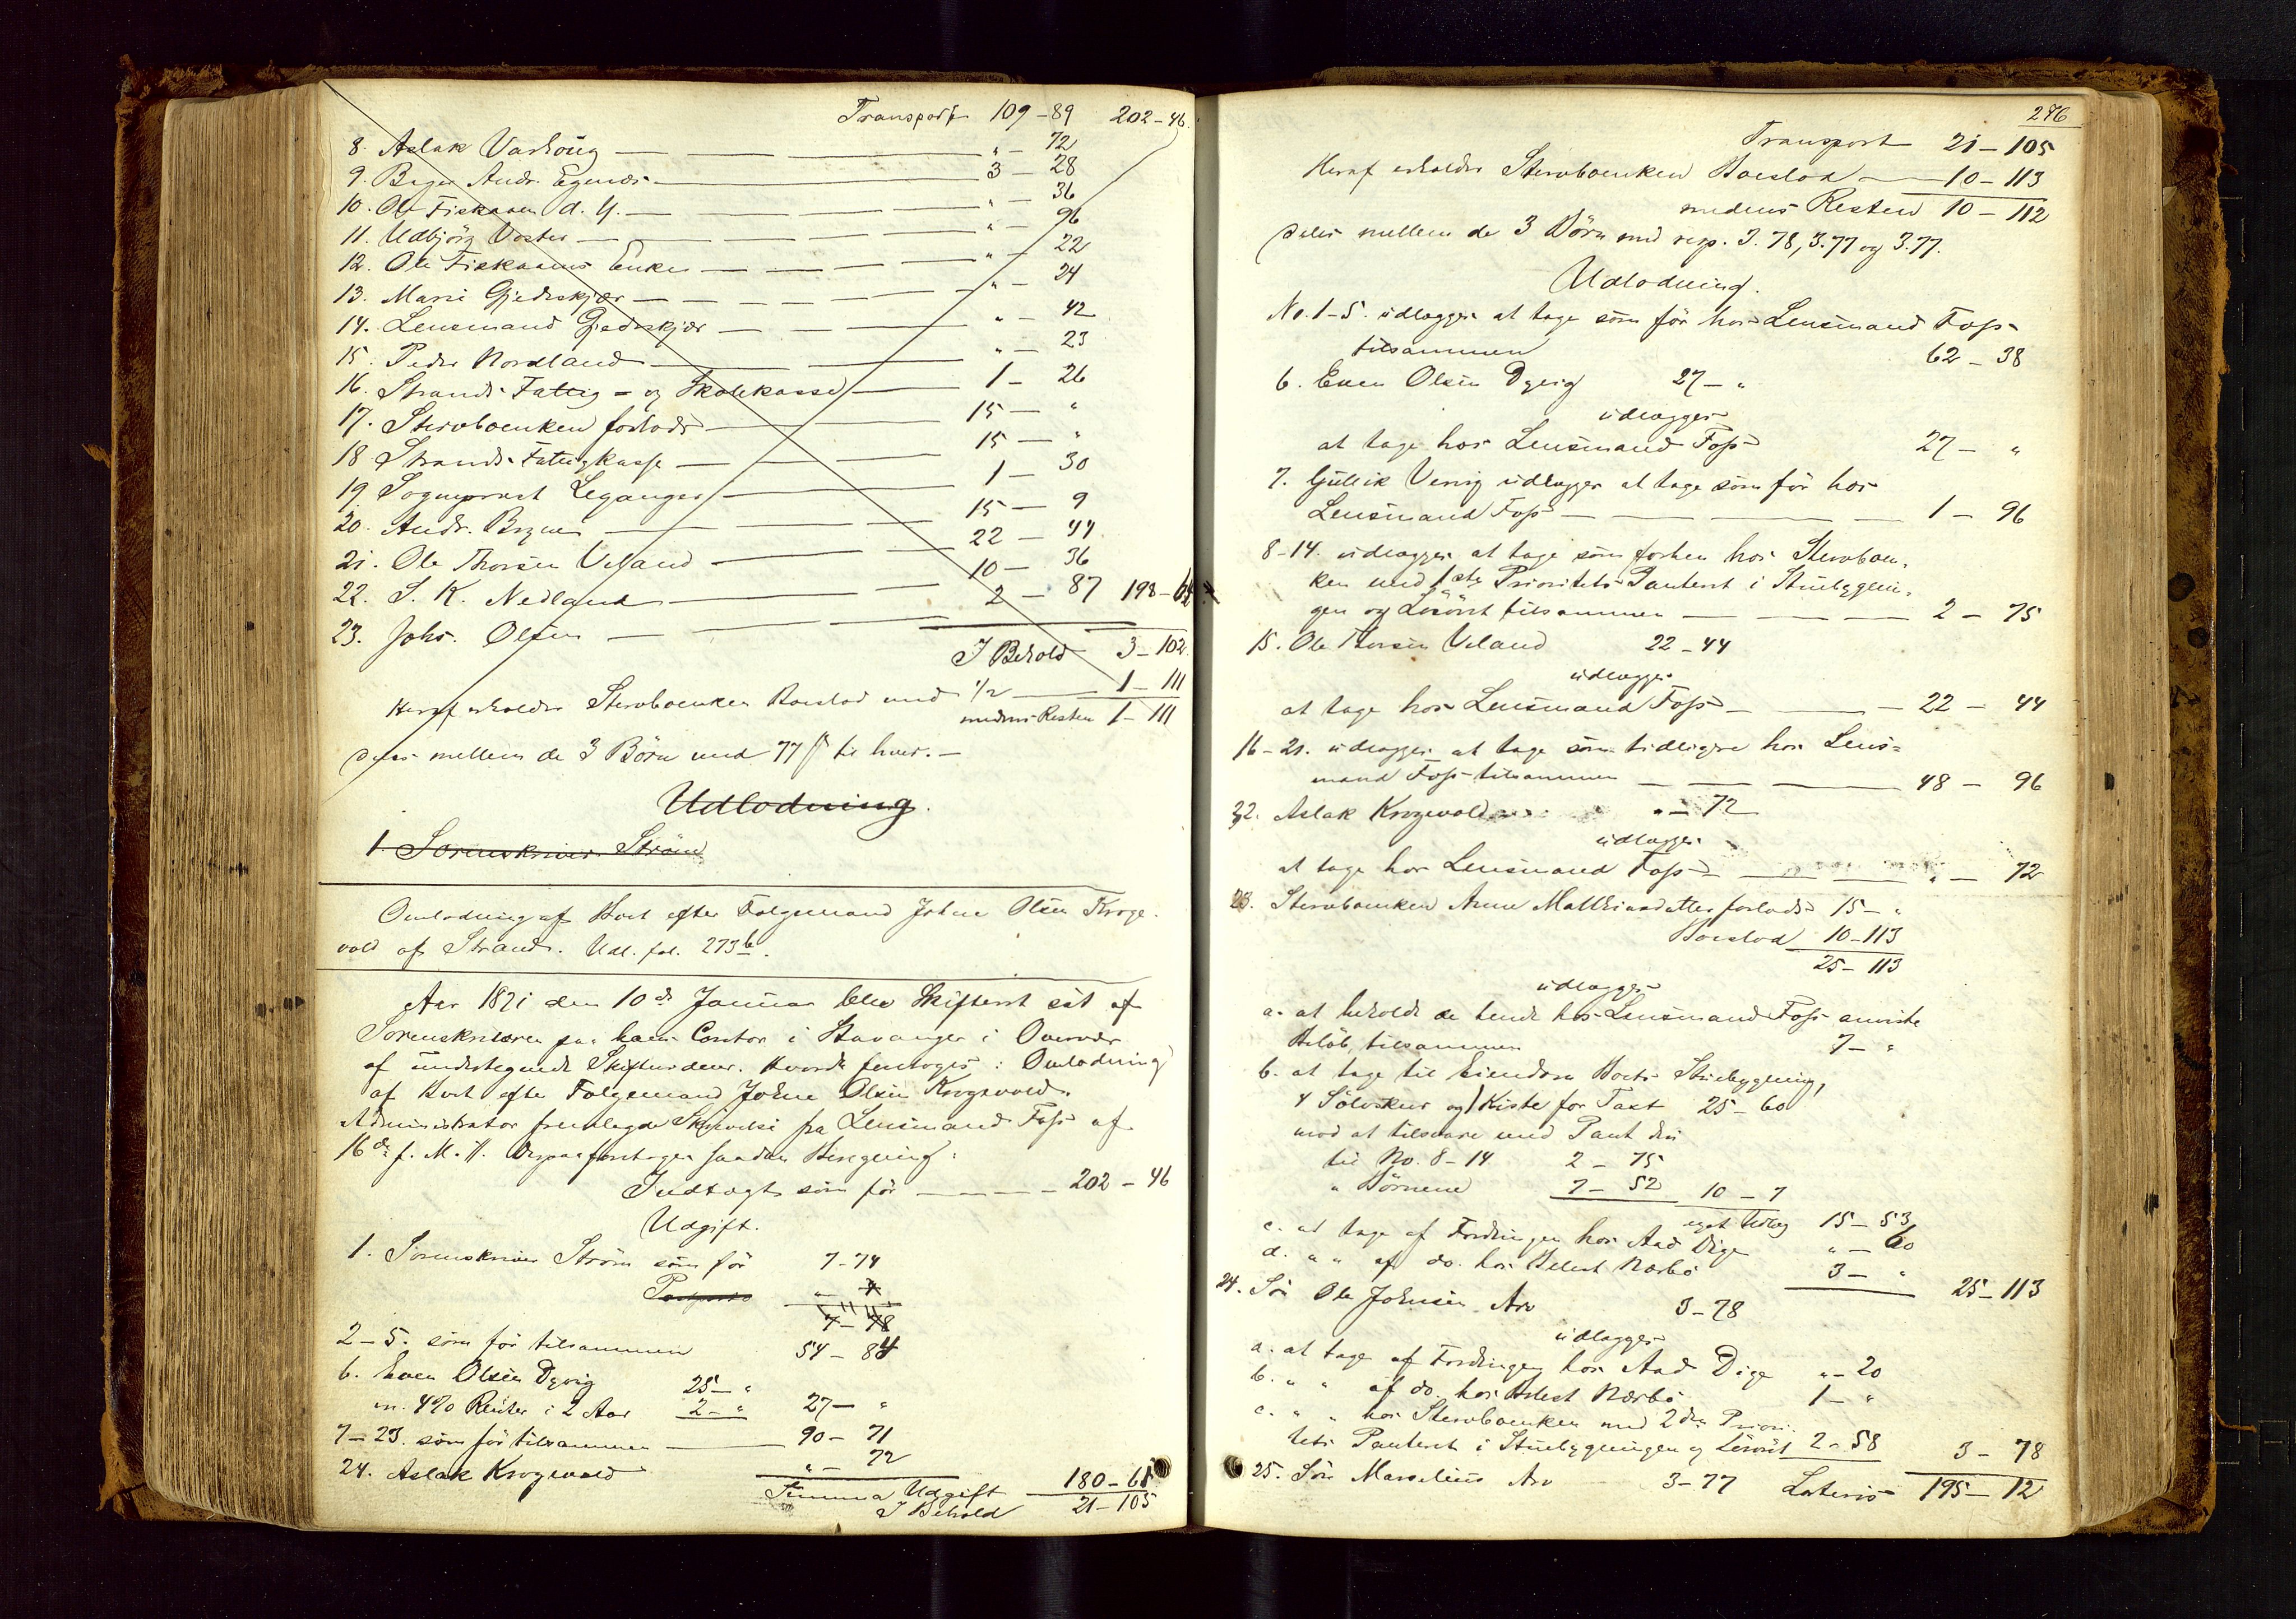 Transport 109 - 89 202 - 46
8. Aslak Varhoug — " - 72
9. Bager Andr. Egenæs — 3 - 28
10. Ole Fiskaaen d. Y. — " - 36
11. Udbjörg Voster — " - 96
12. Ole Fiskaaens Enke — " - 22
13. Marie Gjedreskjær — " - 24
14. Lensmand Gjedreskjær — " - 42
15. Peder Nordland — " - 23
16. Strands Fattig- og Skolekasse — 1 - 26
17. Stervboenken forlods — 15 - "
18. Strands Fattigkasse — 15 - "
19. Sogneprest Leganger — 1 - 30
20. Andr. Bryne — 15 - 9
21. Ole Thorsen Veland — 22 - 44
22. S. K. Nedland — 10 - 36
23. Johs. Olsen — 2 - 87 198 - 64
I Behold 3 - 102
Heraf erholder Stervboenken Boeslod med 1/2 — 1 - 111
medens Resten 1 - 111
deles mellem de 3 Börn med 77 ß til hver. —
Udlodning.
1. Sorenskriver Ström
Omlodning af Boet efter Folgemand Johne Olsen Kroge-
vold af Strand. Udl. fol. 273 b.
Aar 1871 den 10de Januar blev Skifteret sat af
Sorenskriveren paa hans Contor i Stavanger i Overvær
af undertegnede Skiftevidner. Hvorda foretoges: Omlodning
af Boet efter Folgemand Johne Olsen Krogevold.
Administrator fremlagde Skrivelse fra Lensmand Foss af
16de f. M. Derpaa foretoges saadan Beregning:
Indtægt som för — 202 - 46
Udgift.
1. Sorenskriver Ström som för 7 - 74
" - 4
7 - 78
2 - 5. som för tilsammen 54 - 84
6. Even Olsen Dyvig 25 - "
m. 4% Renter i 2 Aar 2 - " 27 - "
7 - 23. som för tilsammen — 90 - 71
24. Aslak Krogevold " - 72
Summa Udgift 180 - 61
I Behold 21 - 105
276
Transport 21 - 105
Heraf erholder Stervboenken Boeslod — 10 - 113
medens Resten 10 - 112
deles mellem de 3 Börn med resp. 3.78, 3.77 og 3.77.
Udlodning.
No. 1-5. udlægges at tage som för hos Lensmand Foss
tilsammen 62 - 38
6. Even Olsen Dyvig 27 - "
udlægges
at tage hos Lensmand Foss 27 - "
7. Gullik Versvig udlægges at tage som för hos
Lensmand Foss — 1 - 96
8-14. udlægges at tage som forhen hos Stervboen-
ken med 1ste Prioritets Panteret i Stuebygnin-
gen og Lösöret tilsammen — 2 - 75
15. Ole Thorsen Veland 22 - 44
udlægges
at tage hos Lensmand Foss — 22 - 44
16-21. udlægges at tage som tidligere hos Lens-
mand Foss tilsammen — 48 - 96
22. Aslak Krogevold " - 72
udlægges
at tage hos Lensmand Foss — " - 72
23. Stervboenken Anne Malthiasdatter forlods 15 - "
Boeslod 10 - 113
25 - 113
udlægges
a. at beholde de hende hos Lensmand Foss anviste
Belöb, tilsammen 7 - "
b. at tage til Eiendom Boets Stuebygning,
4 Sölvskeer og 1 Kiste for Taxt 25 - 60
mod at tilsvare med Pant deri
til No. 8-14 2 - 75
" Börnene 7 - 52 10 - 7
eget Udlæg 15 - 53
c. at tage af Fordringen hos Aad Dige " - 60
d. " " af do. hos Helest Nærbö 3 - " 25 - 113
24. Sön Ole Johnsen Arv 3 - 78
udlægges
a. at tage af Fordringen hos Aad Dige " - 20
b. " " af do. hos Helest Nærbö 1 - "
c. " " hos Stervboenken med 2den Priori-
tets Panteret i Stuebygningen og Lösöret 2 - 58 3 - 78
25. Sön Marselius Arv 3 - 77 Lateris 195 - 12